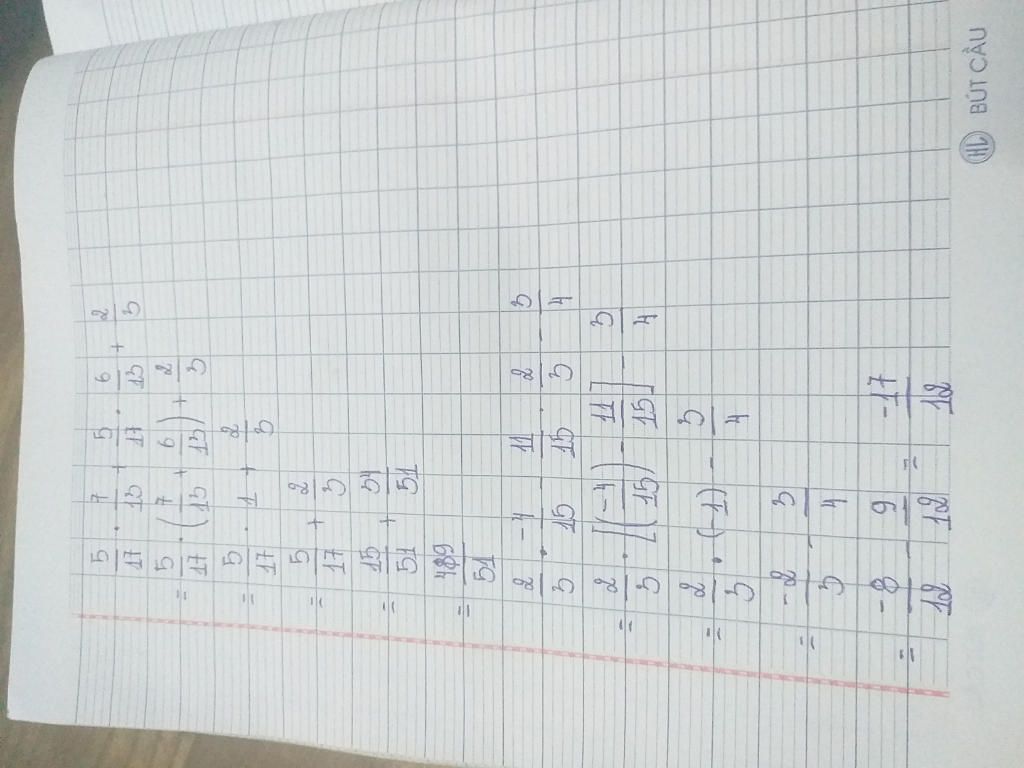 5/17 . 7/13 + 5/17 . 6/13 + 2/3
= 5/17 . (7/13 + 6/13) + 2/3
= 5/17 . 1 + 2/3
= 5/17 + 2/3
= 15/51 + 34/51
= 51
2/3 . -4/15 - 11/15 . 2/3 - 3/4
= 2/3 . [(-4/15) - 11/15] - 3/4
= 2/3 . (-1) - 3/4
= -2/3 - 3/4
= -8/12 - 9/12 = -17/12
HL BÚT CẦU